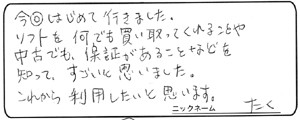 今回はじめて行きました。
ソフトを何でも買い取ってくれることや
中古でも、保証があることなどを
知って、すごいと思いました。
これから利用したいと思います。
ニックネーム たく